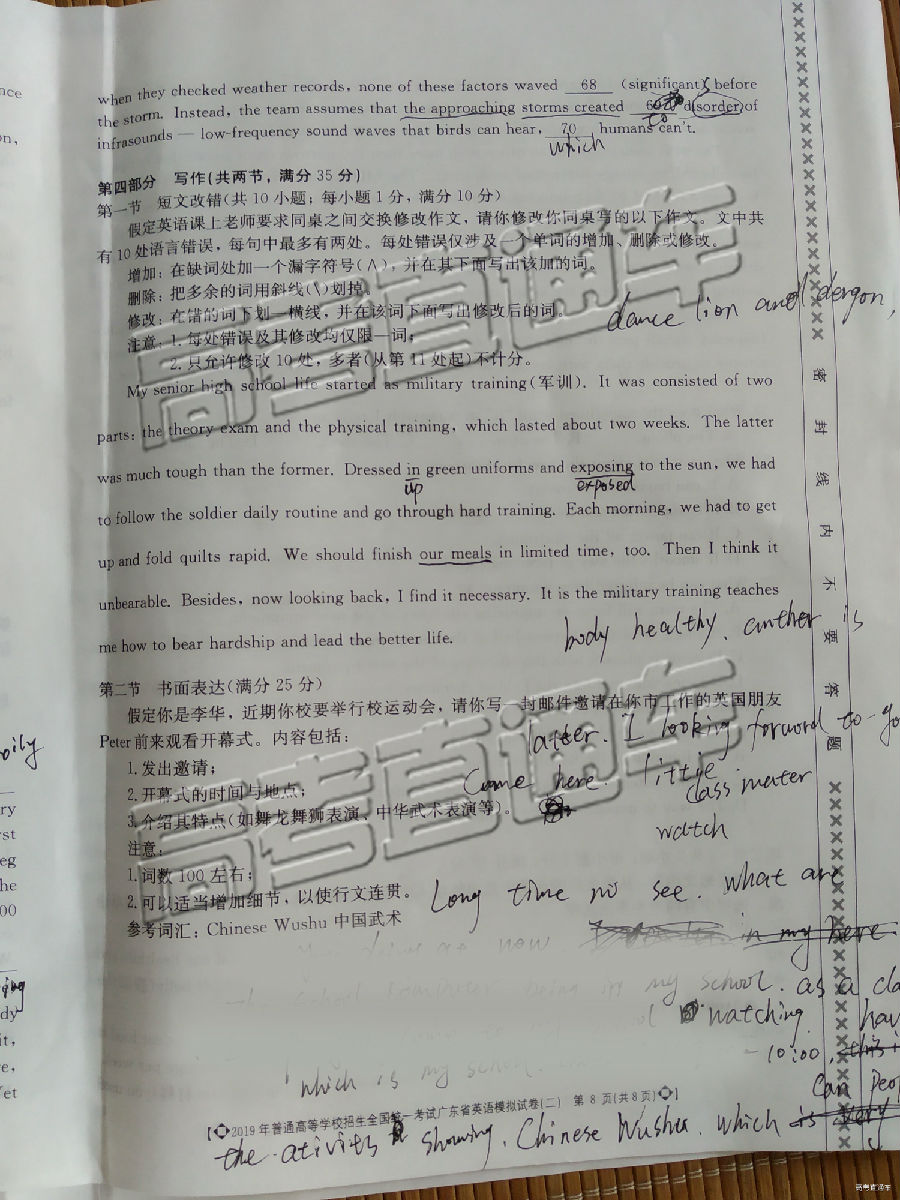 nce
on,
when they checked weather records, none of these factors waved 68 (significant) before
the storm. Instead, the team assumes that the approaching storms created (disorder) of
to
infrasounds — low-frequency sound waves that birds can hear, 70 humans can't.
which
第四部分 写作(共两节,满分 35 分)
第一节 短文改错(共 10 小题;每小题 1 分,满分 10 分)
假定英语课上老师要求同桌之间交换修改作文,请你修改你同桌写的以下作文。文中共
有 10 处语言错误,每句中最多有两处。每处错误仅涉及一个单词的增加、删除或修改。
增加:在缺词处加一个漏字符号(∧),并在其下面写出该加的词。
删除:把多余的词用斜线(\)划掉。
修改:在错的词下划一横线,并在该词下面写出修改后的词。
dance lion and dergon,
注意:1. 每处错误及其修改均仅限一词;
2. 只允许修改 10 处,多者(从第 11 处起)不计分。
My senior high school life started as military training(军训). It was consisted of two
parts: the theory exam and the physical training, which lasted about two weeks. The latter
was much tough than the former. Dressed in green uniforms and exposing to the sun, we had
up exposed
to follow the soldier daily routine and go through hard training. Each morning, we had to get
up and fold quilts rapid. We should finish our meals in limited time, too. Then I think it
unbearable. Besides, now looking back, I find it necessary. It is the military training teaches
me how to bear hardship and lead the better life.
body healthy. anther is
第二节 书面表达(满分 25 分)
假定你是李华,近期你校要举行校运动会,请你写一封邮件邀请在你市工作的英国朋友
Peter 前来观看开幕式。内容包括:
latter. I looking forward to go
1. 发出邀请;
Come here. little
2. 开幕式的时间与地点;
class mater
3. 介绍其特点(如舞龙舞狮表演、中华武术表演等)。
watch
注意:
1. 词数 100 左右;
2. 可以适当增加细节,以使行文连贯。
Long time no see. What are
参考词汇:Chinese Wushu 中国武术
now in my here
being in my school. as a cla
watching. hav
10:00, this i
which is my school.
Can peop
【2019 年普通高等学校招生全国统一考试广东省英语模拟试卷(二) 第 8 页(共 8 页)】
the ativits showing. Chinese Wushu. which is very
密封线内不要答题
oily
ry
rst
eg
he
00
ing
dy
it,
e,
Yet
高考直通车
高考直通车
高考直通车